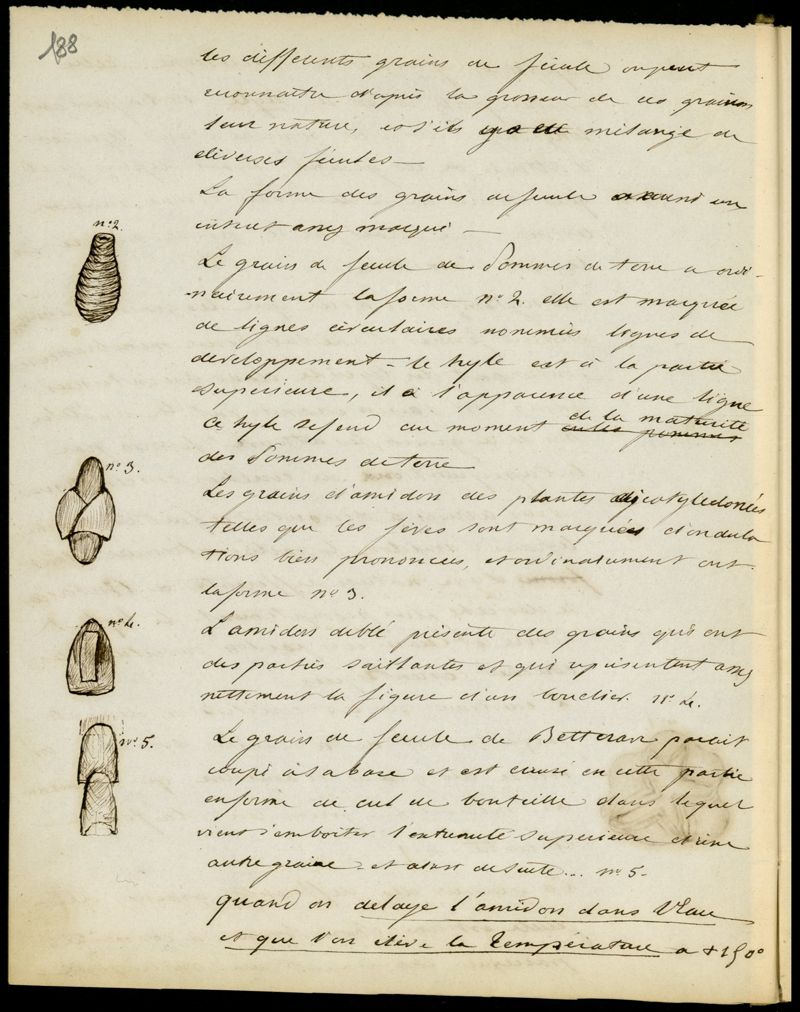 188
les différents grains de fécule on peut
reconnaître d'après la grosseur de ces grains
leur nature, et s'ils mélange de
diverses fécules —
La forme des grains de fécule un
intérêt assez marqué —
n° 2.
Le grains de fécule de Pommes de terre a ordi-
nairement la forme n° 2. elle est marquée
de lignes circulaires nommées lignes de
developpement - le hyle est à la partie
superieure, il a l'apparence d'une ligne
de la maturité
Ce hyle se fend au moment
des Pommes de terre
n° 3.
Les grains d'amidon des plantes dycotyledonées
telles que les fèves sont marquées d'ondula
tions bien prononcées, et ordinairement ont
la forme n° 3.
n° 4.
L'amidon de blé présente des grains qui ont
des parties saillantes et qui représentent assez
nettement la figure d'un bouclier. n° 4.
n° 5.
Le grains de fécule de Betterave parait
coupé à sa base et est creusé en cette partie
en forme de cul de bouteille dans lequel
vient s'emboiter l'extremité superieure d'une
autre graine - et ainsi de suite... n° 5-
quand on delaye l'amidon dans l'Eau
et que l'on élève la Température a + 150°